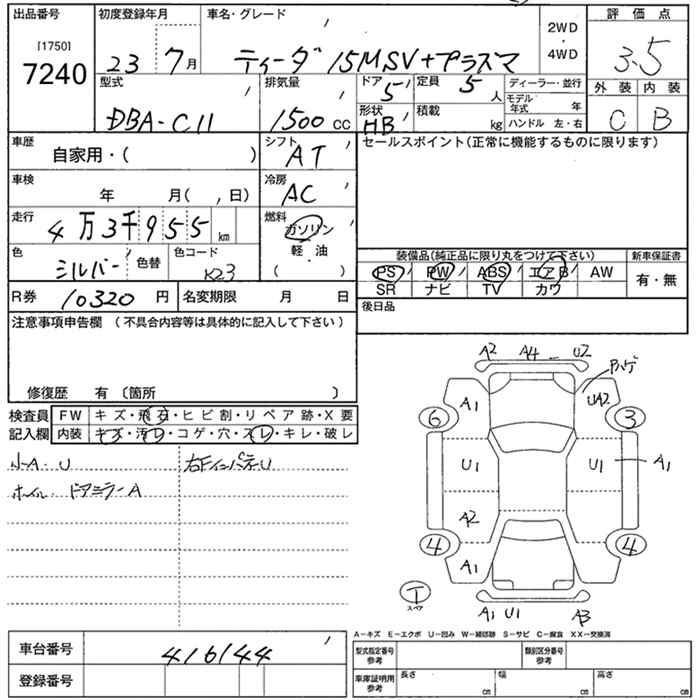 出品番号 初度登録年月 車名・グレード 評価点
[1750]
7240
23 7月 ティーダ 15MSV+プラズマ
2WD
・
4WD
3.5
型式 排気量 ドア 定員 ディーラー・並行 外装 内装
DBA-C11 1500 CC 5 5人
形状 積載 モデル年式 年
HB kg ハンドル 左・右
C B
車歴 シフト セールスポイント(正常に機能するものに限ります)
自家用・( ) AT
車検 冷房
年 月( , 日) AC
走行 燃料
4万3千955 km ガソリン
軽・油
( ・ )
色 色替 色コード
シルバー K23
装備品(純正品に限り丸をつけて下さい) 新車保証書
PS PW ABS エアB AW 有・無
SR ナビ TV カワ
R券 10320 円 名変期限 月 日 後日品
注意事項申告欄 (不具合内容等は具体的に記入して下さい)
修復歴 有 〔箇所 〕
検査員 FW キズ・飛石・ヒビ割・リペア跡・X要
記入欄 内装 キズ・汚レ・コゲ・穴・スレ・キレ・破レ
小A.U 右FインパネU
ホイル. ドアミラーA
A2 A4 U2
ハゲ
A1 UA2
6 3
U1 U1 A1
A2
4 4
A1
T
スペア
A1 U1 A3
A-キズ E-エクボ U-凹み W-補修跡 S-サビ C-腐食 XX-交換済
車台番号 416144
登録番号
型式指定番号 参考 類別区分番号 参考
車庫証明用 参考 長さ cm 幅 cm 高さ cm